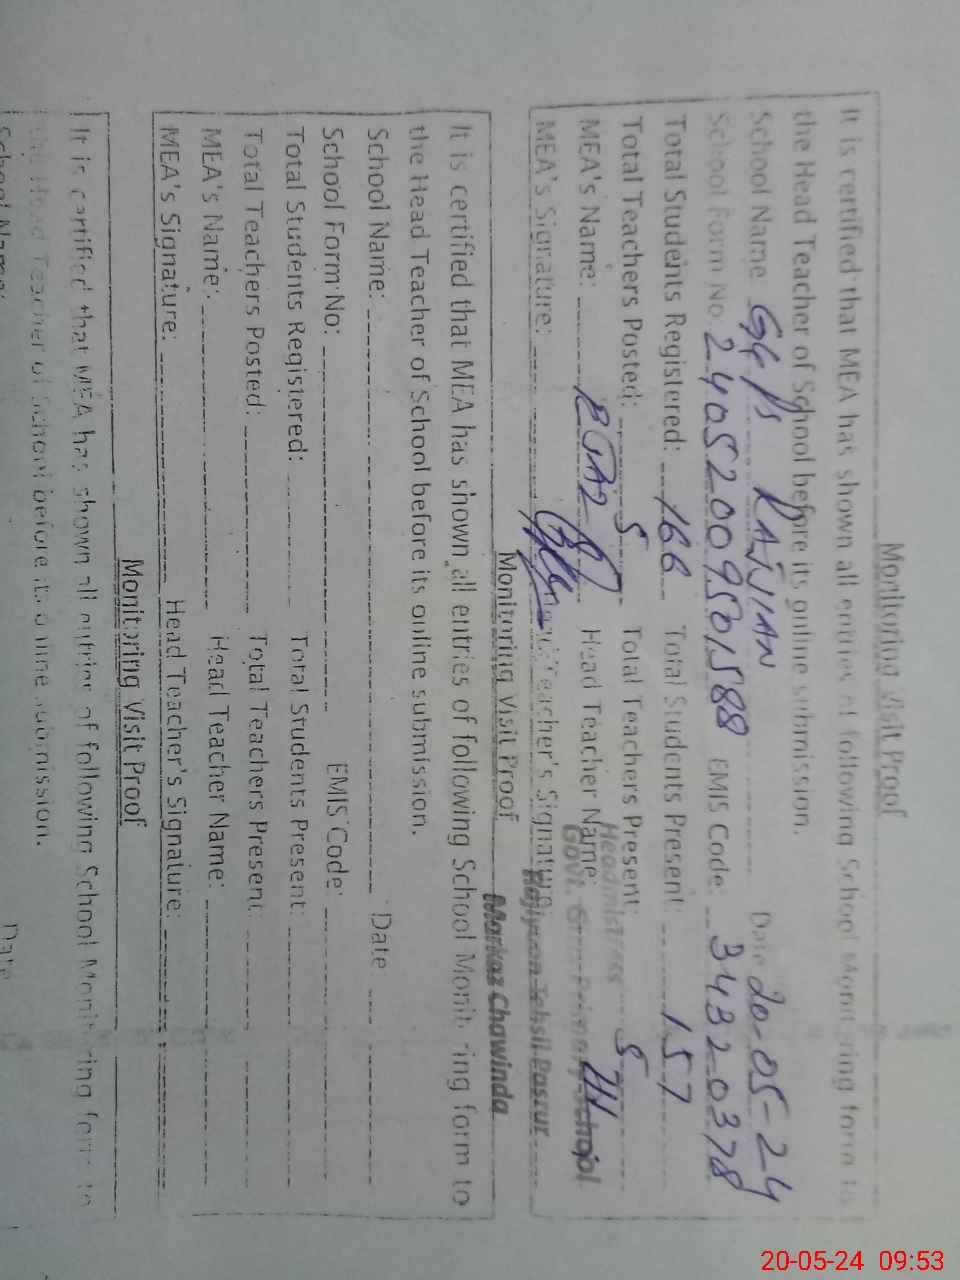 Monitoring Visit Proof
It is certified that MEA has shown all entries of following School Monitoring form to
the Head Teacher of School before its online submission.
School Name GGPS RAJJIAN Date 20-05-24
School Form No: 24052009501588 EMIS Code: 34320378
Total Students Registered: 166 Total Students Present: 157
Total Teachers Posted: 5 Total Teachers Present: 5
MEA's Name: Head Teacher Name:
MEA's Signature: Teacher's Signature
Headmistress
Govt. Girls Primary School
Tehsil Pasrur
Markaz Chawinda
Monitoring Visit Proof
It is certified that MEA has shown all entries of following School Monit ring form to
the Head Teacher of School before its online submission.
School Name: Date
School Form No: EMIS Code:
Total Students Registered: Total Students Present:
Total Teachers Posted: Total Teachers Present:
MEA's Name: Head Teacher Name:
MEA's Signature: Head Teacher's Signature:
Monitoring Visit Proof
It is certified that MEA has shown all entries of following School Monit ring form to
the Head Teacher of School before its online submission.
School Name: Date
20-05-24 09:53